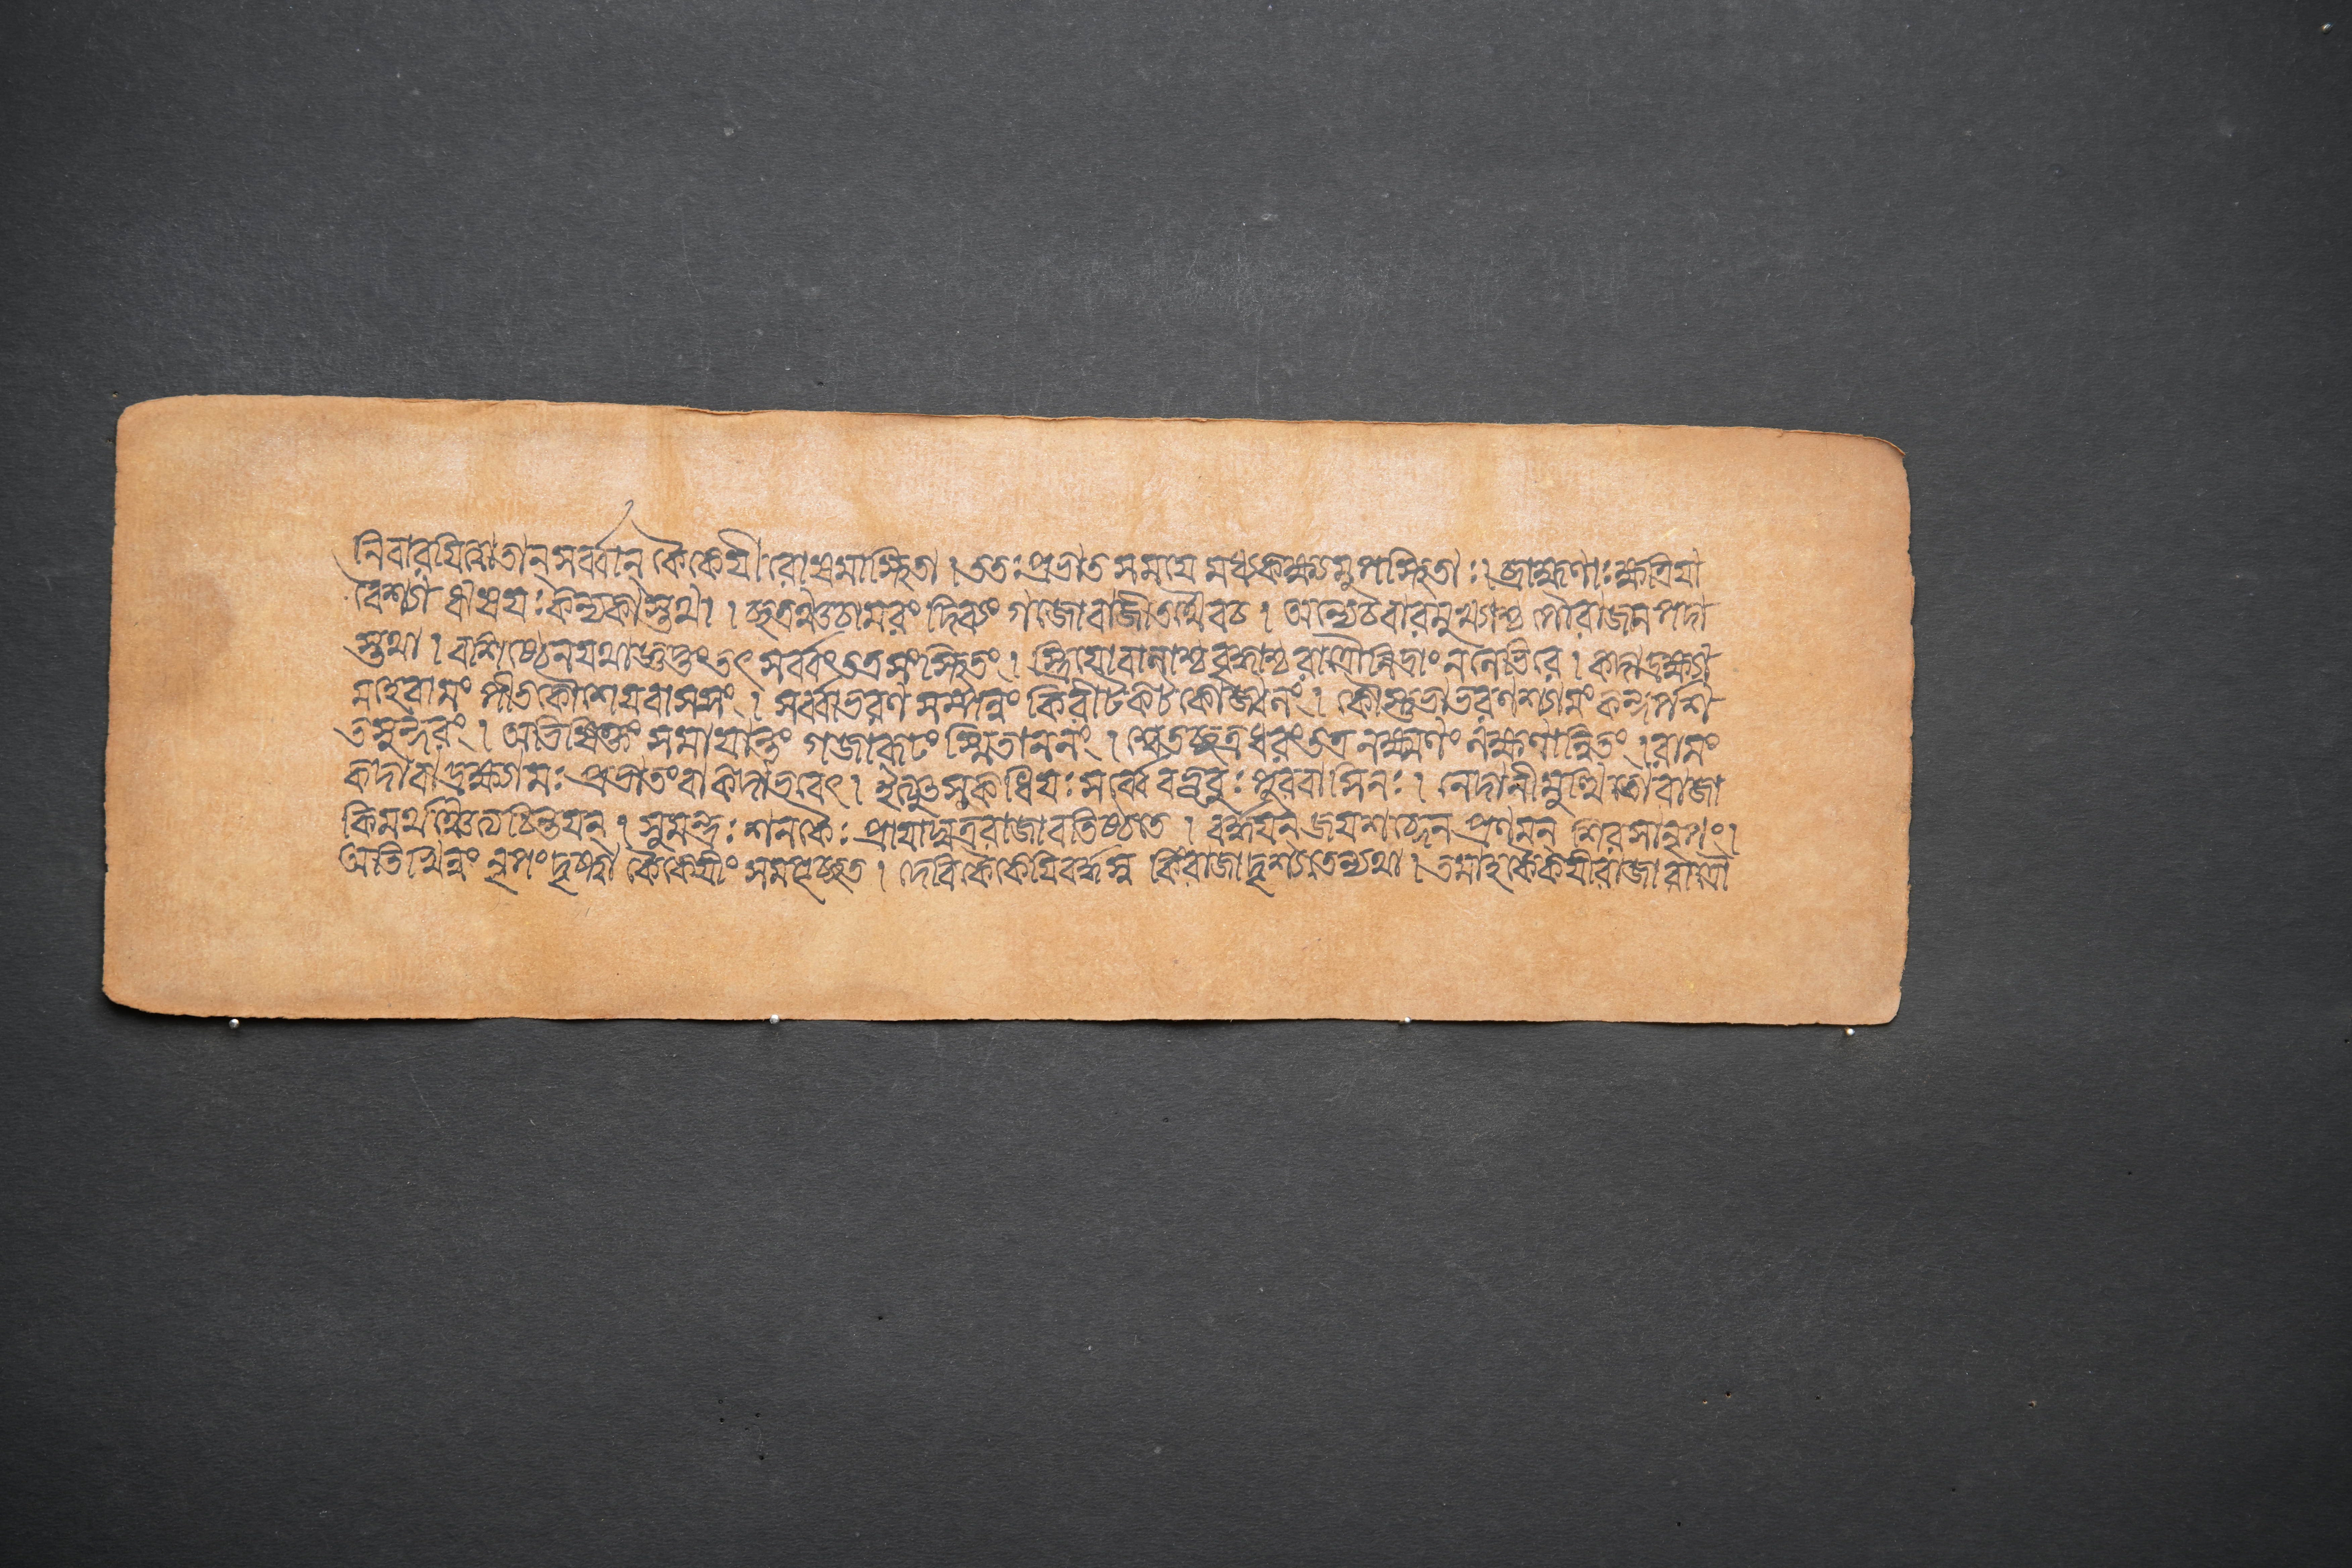 নিবারযিত্বাতান্ সর্ব্বান্ কৈকেযী রোষমাস্থিতা । ততঃ প্রভাত সমযে মধ্যকক্ষমুপাস্থিতাঃ । ব্রাহ্মণাঃ ক্ষত্রিযা
বৈশ্যা ঋষযঃ কন্যকাস্তথা । ছত্রঞ্চচামরং দিব্যং গজোবাজীতথৈবচ । অন্যেচবারমুখ্যাশ্চ পৌরাজনপদা
স্তথা । বশিষ্ঠেনযথাজ্ঞপ্তং তৎ সর্ব্বং তত্রসংস্থিতং । স্ত্রিযোবালাশ্চবৃদ্ধাশ্চ রাত্রৌনিদ্রাং ন লেভিরে । কদাদ্রক্ষ্যা
মহেরামং পীতকৌশেযবাসসং । সর্ব্বাভরণ সম্পন্নং কিরীটকটকোজ্জ্বলং । কৌস্তুভাভরণং শ্যামং কন্দর্পশ
তসুন্দরং । অভিষিক্তং সমাযান্তং গজারূঢং স্মিতাননং । শ্বেতচ্ছত্রধরং তত্র লক্ষ্মণং লক্ষণান্বিতং । রামং
কদাবাদ্রক্ষ্যামঃ প্রভাতং বা কদাভবেৎ । ইত্যুৎসুকাধিযঃ সর্ব্বে বভূবুঃ পুরবাসিনঃ । নেদানীমুত্থিতোরাজা
কিমর্থঞ্চেতিচিন্তযন্ । সুমন্ত্রঃ শনকৈঃ প্রাযাদ্যত্ররাজাবতিষ্ঠতে । বর্দ্ধযন্ জযশব্দেন প্রণমন্ শিরসানৃপং ।
অতিখিন্নং নৃপং দৃষ্ট্বা কৈকেযীং সমপৃচ্ছত । দেবি কৈকেযি বর্দ্ধস্ব কিংরাজাদৃশ্যতেন্যথা । তমাহ কৈকেযী রাজা রাত্রৌ